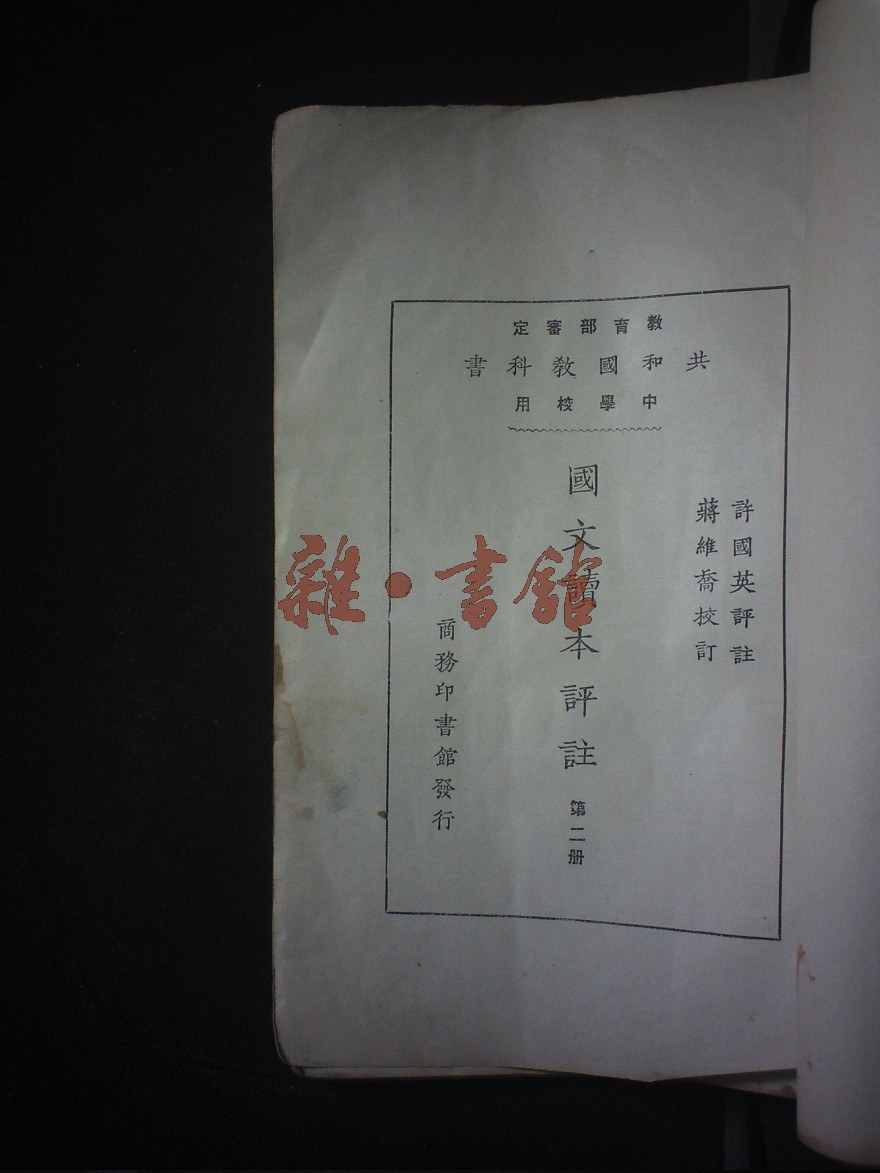 教育部審定
共和國教科書
中學校用
許國英評註
蔣維喬挍訂
國文讀本評註
第二册
商務印書館發行
雜·書館